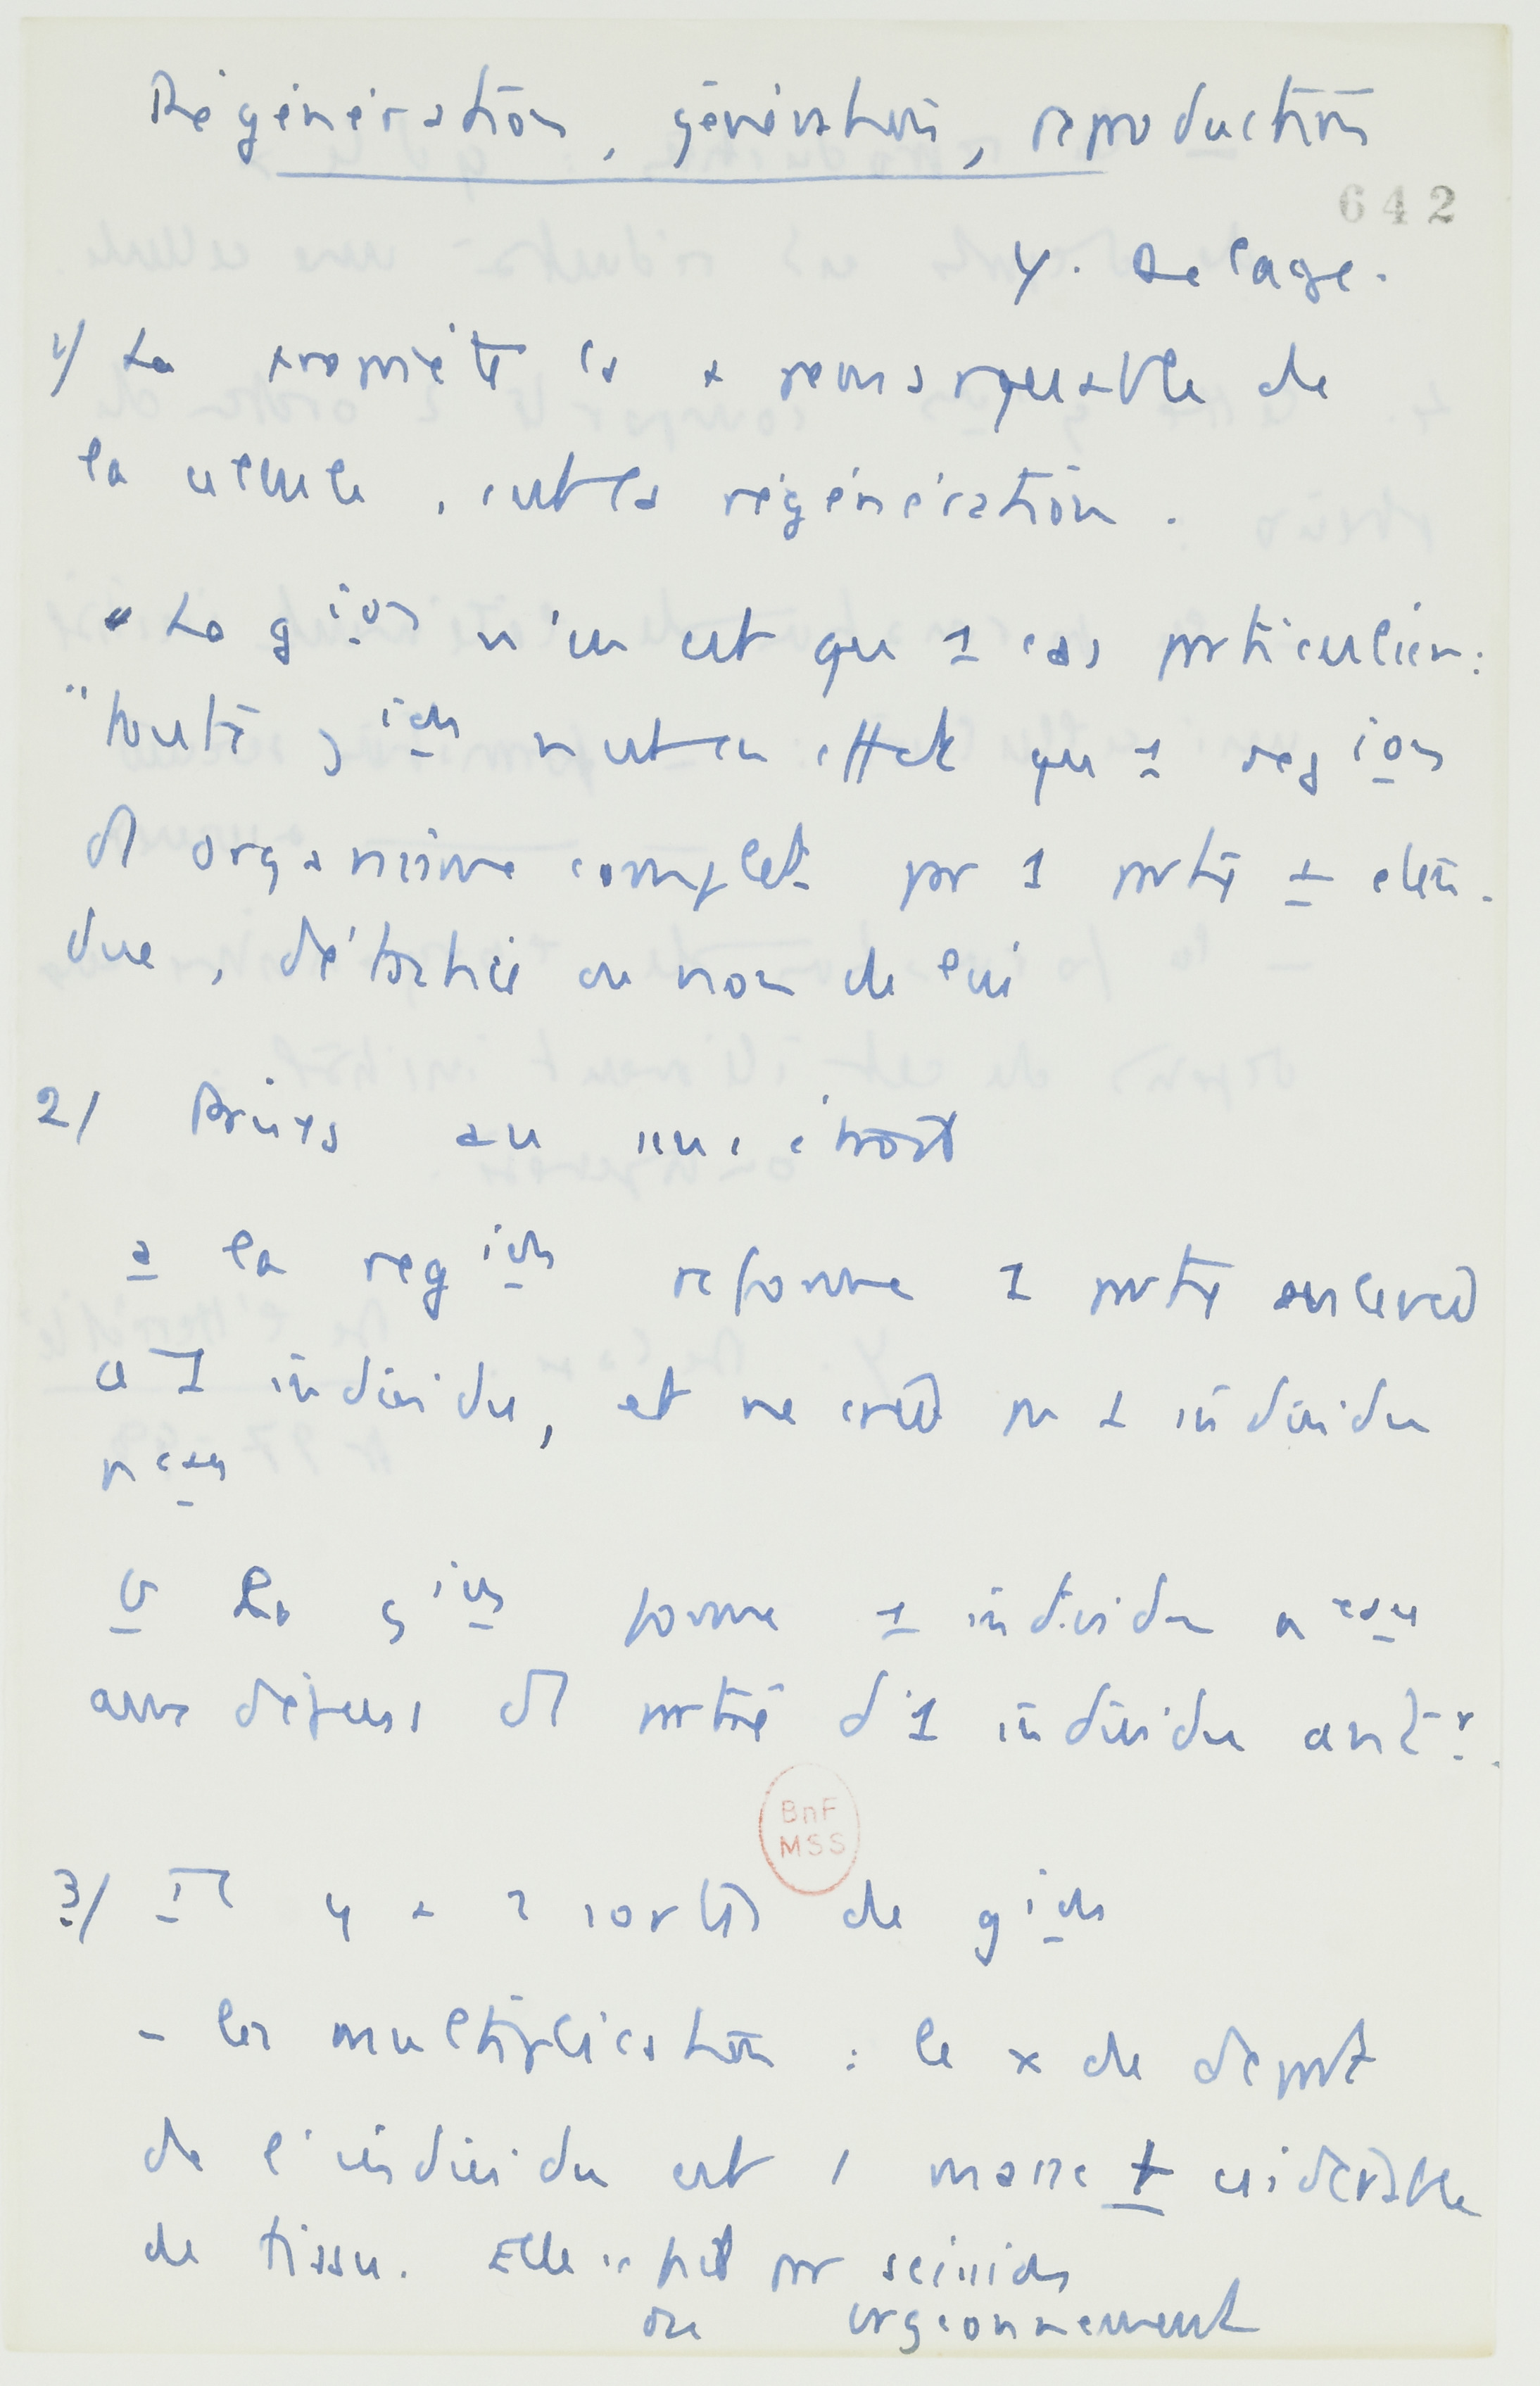 Régénération, génération, reproduction
642
Y. Delage.
1/ La propriété la + remarquable de
la cellule, est la régénération.
" La g^ion n'en est que 1 cas particulier :
" toute g^ion n'est en effet que 1 reg^ion
d'1 organisme complet par 1 partie ± éten-
due, détachée ou non de lui
2/ Prises au sens étroit
a la reg^ion reforme 1 partie enlevée
à 1 individu, et ne crée pas 1 individu
n^eau
b La g^ion forme 1 individu n^eau
aux dépens d'1 partie d'1 individu ant^r.
3/ Il y a 2 sortes de g^ion
- la multiplication : le x de départ
de l'individu est 1 masse ± considérable
de tissu. Elle se fait par scission
ou bourgeonnement
BnF
MSS